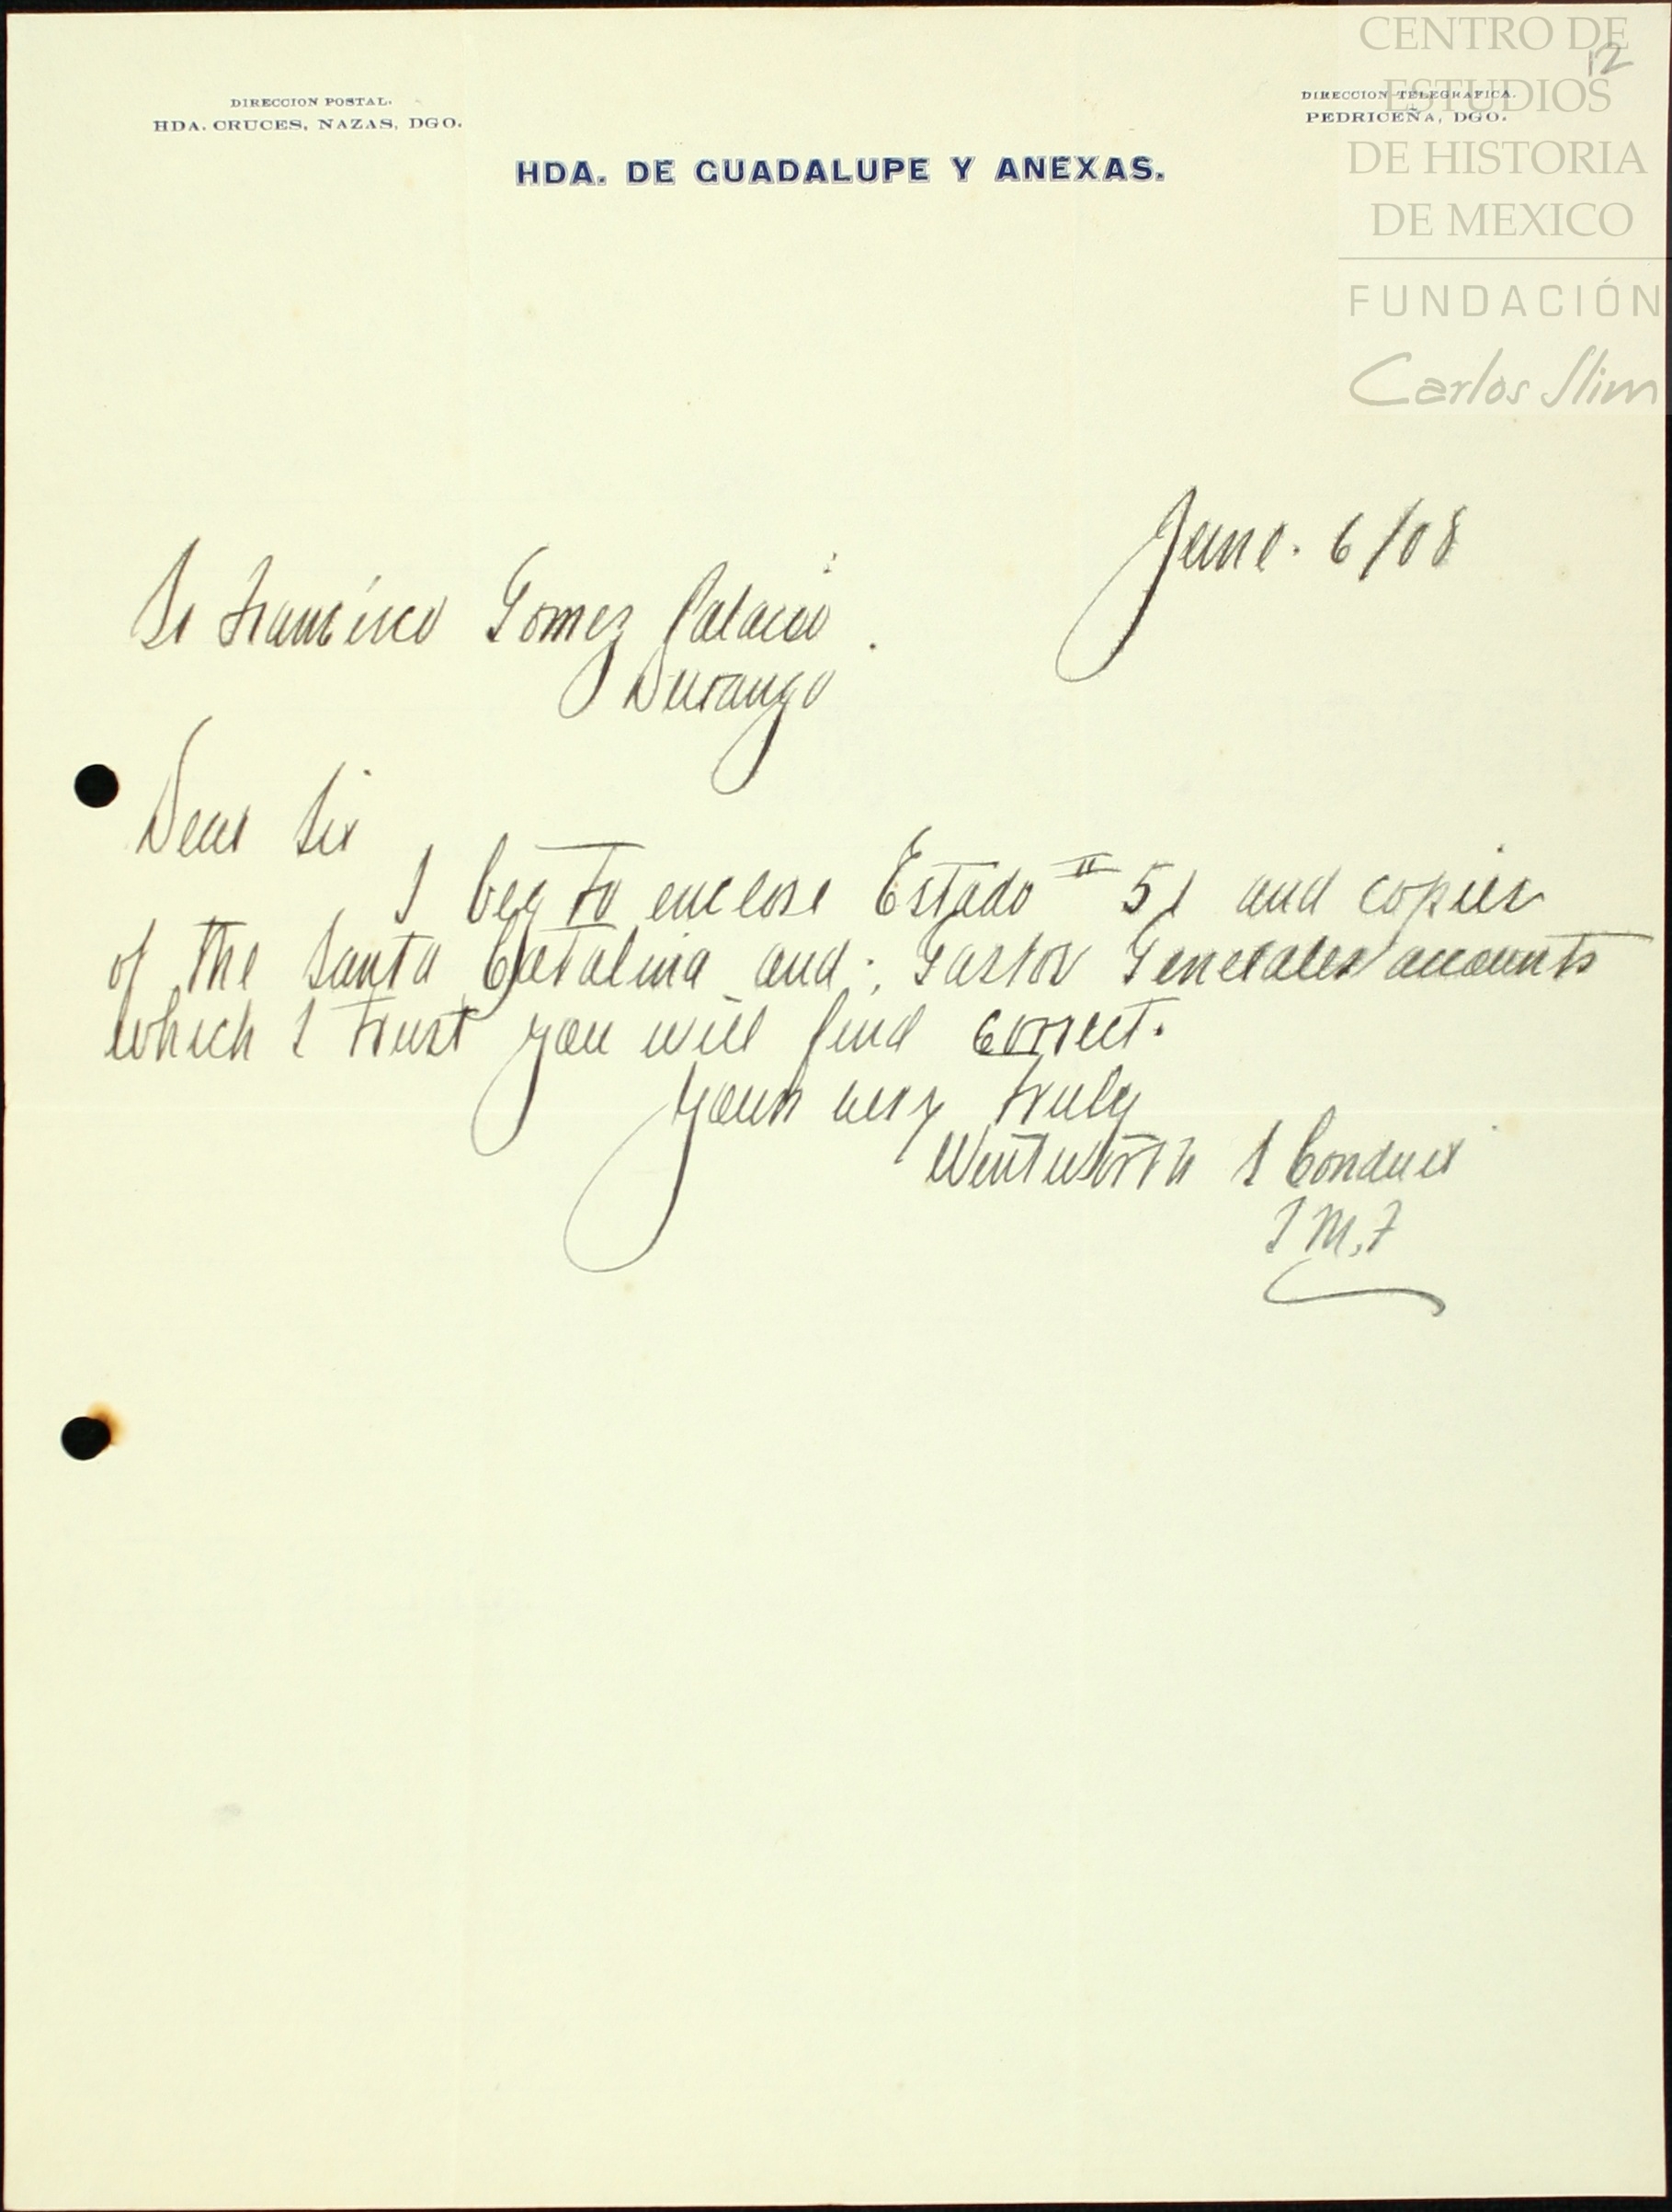 CENTRO DE
ESTUDIOS
DE HISTORIA
DE MEXICO
FUNDACIÓN
Carlos Slim
12
DIRECCION POSTAL.
HDA. CRUCES, NAZAS, DGO.
DIRECCION TELEGRAFICA.
PEDRICEÑA, DGO.
HDA. DE GUADALUPE Y ANEXAS.
June. 6/08
Sr Francisco Gomez Palacio.
Durango
Dear Sir
I beg to enclose Estado # 51 and copies
of the Santa Catalina and Gastos Generales accounts
which I trust you will find correct.
Yours very truly
Wentworth S Conduit